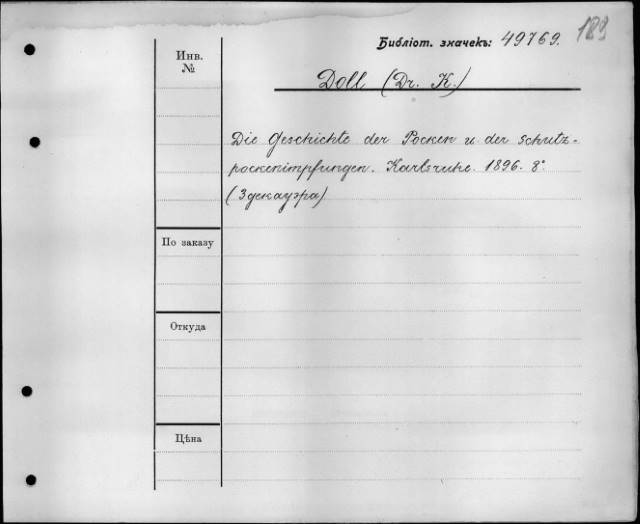 189
Библіот. значекъ: 49769.
Инв.
№
Doll (Dr. K.)
Die Geschichte der Pocken u. der Schutz-
pockenimpfungen. Karlsruhe. 1896. 8°
(Здекауэра)
По заказу
Откуда
Цѣна